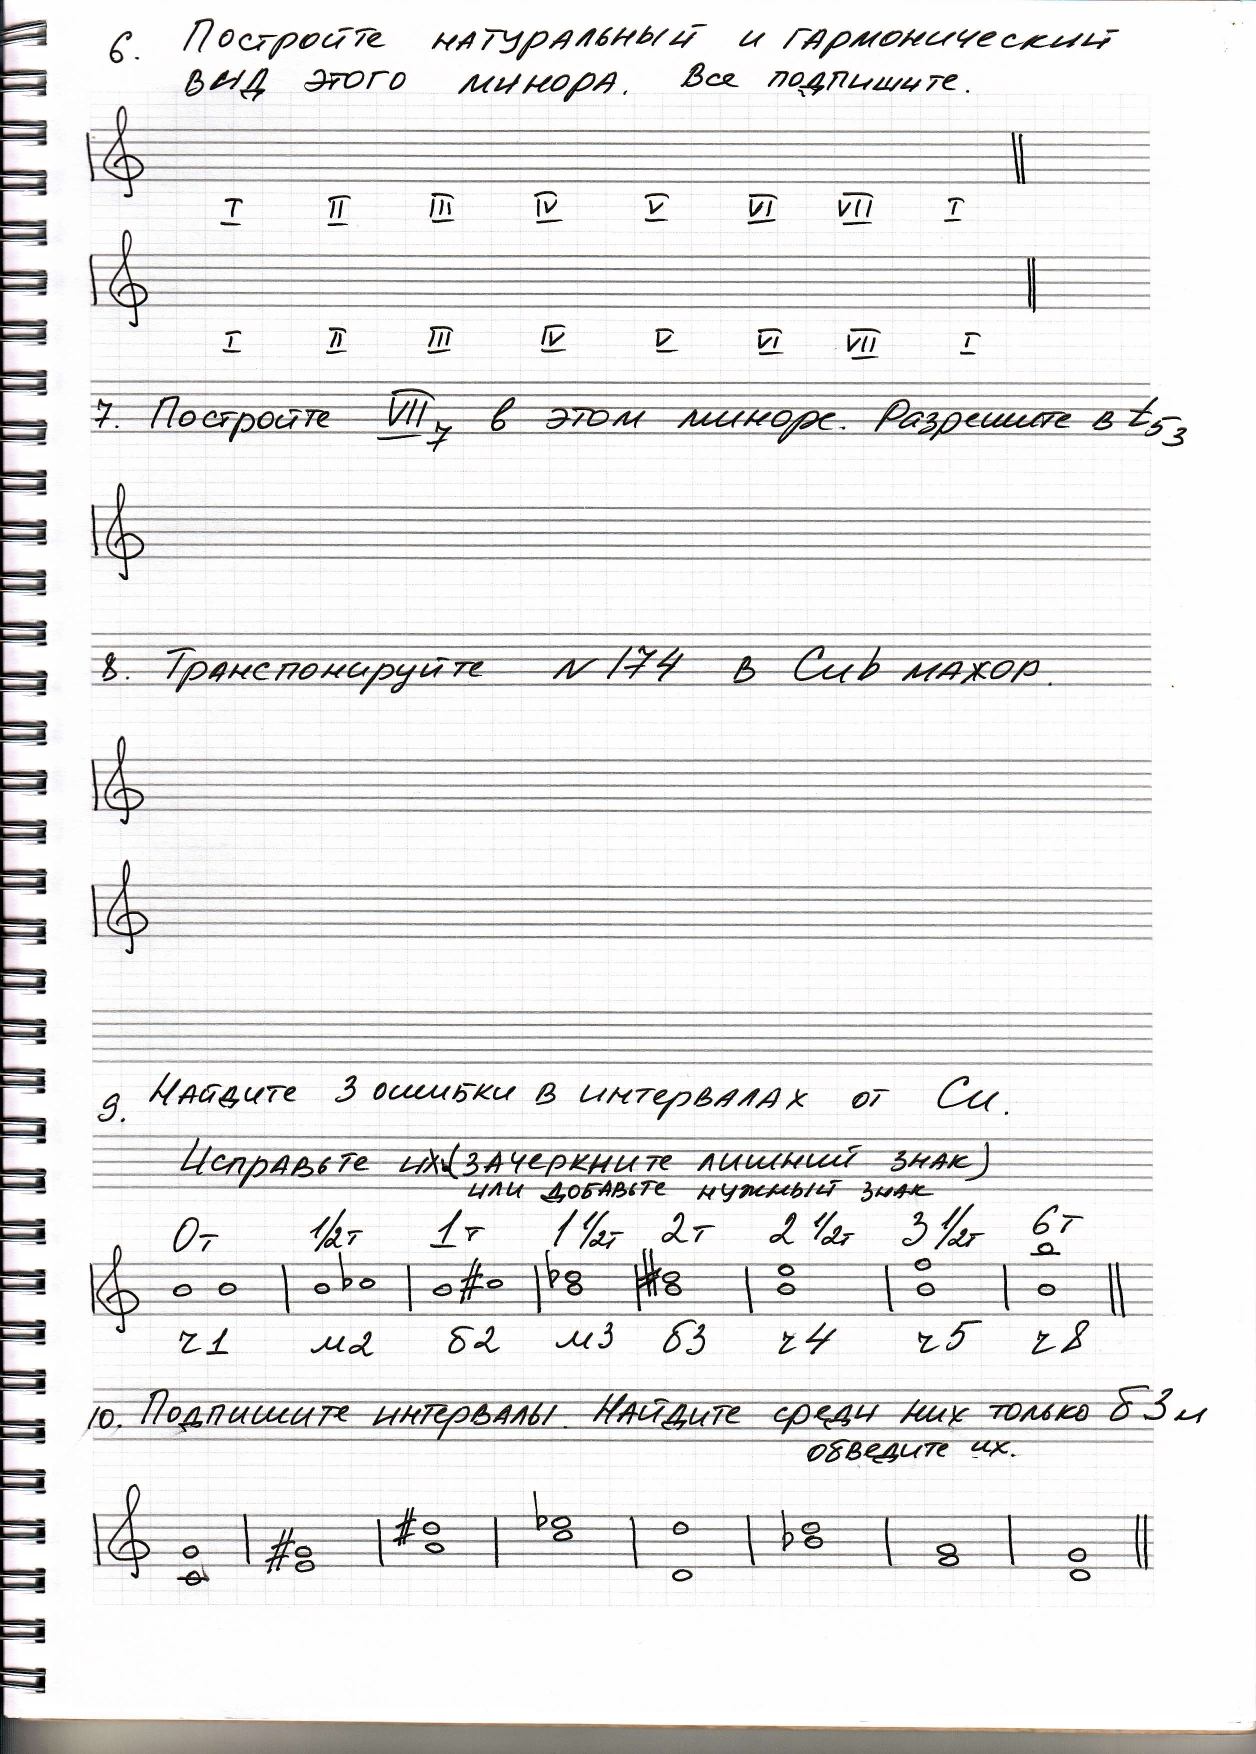 6. Постройте натуральный и гармонический
вид этого минора. Все подпишите.
I II III IV V VI VII I
I II III IV V VI VII I
7. Постройте VII7 в этом миноре. Разрешите в t53
8. Транспонируйте N 174 в Сиb мажор.
9. Найдите 3 ошибки в интервалах от Си.
Исправьте их (зачеркните лишний знак)
или добавьте нужный знак
0т 1/2т 1т 1 1/2т 2т 2 1/2т 3 1/2т 6т
ч1 м2 б2 м3 б3 ч4 ч5 ч8
10. Подпишите интервалы. Найдите среди них только б3 и
обведите их.